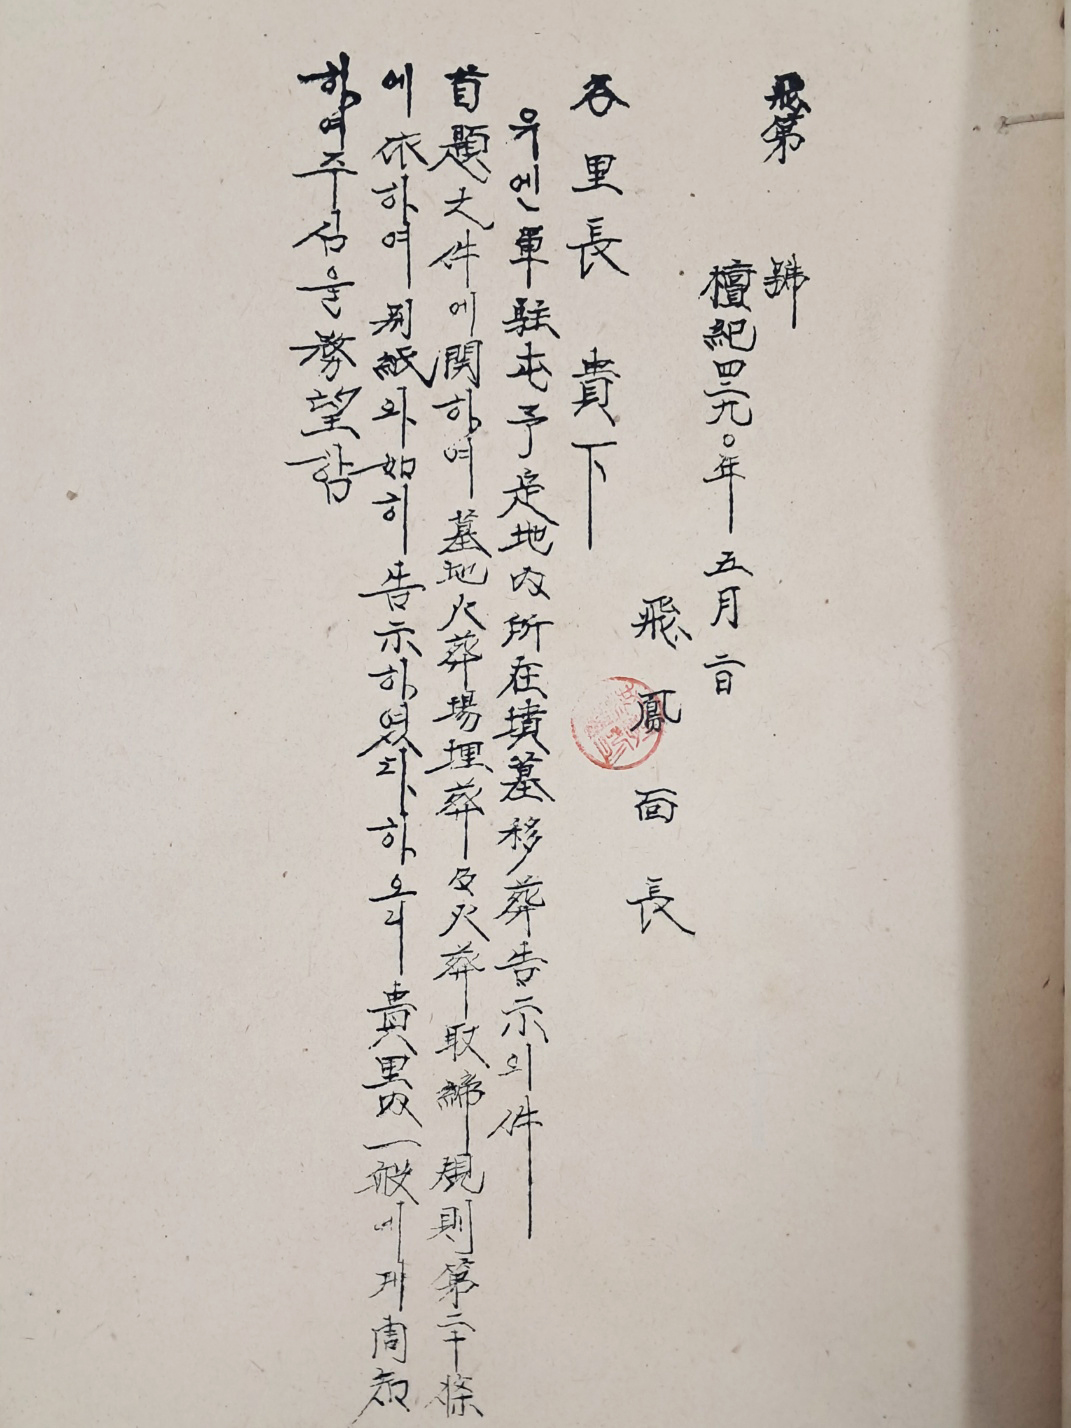 飛第 號
檀紀四二九〇年 五月 二日
飛鳳面長
各里長 貴下
유엔軍駐屯予定地內所在墳墓移葬告示의件
首題之件에関하여 墓地火葬場埋葬及火葬取締規則第二十條
에依하여 別紙와如히 告示하였다하오니 貴里內一般에게周知
하여주심을務望함